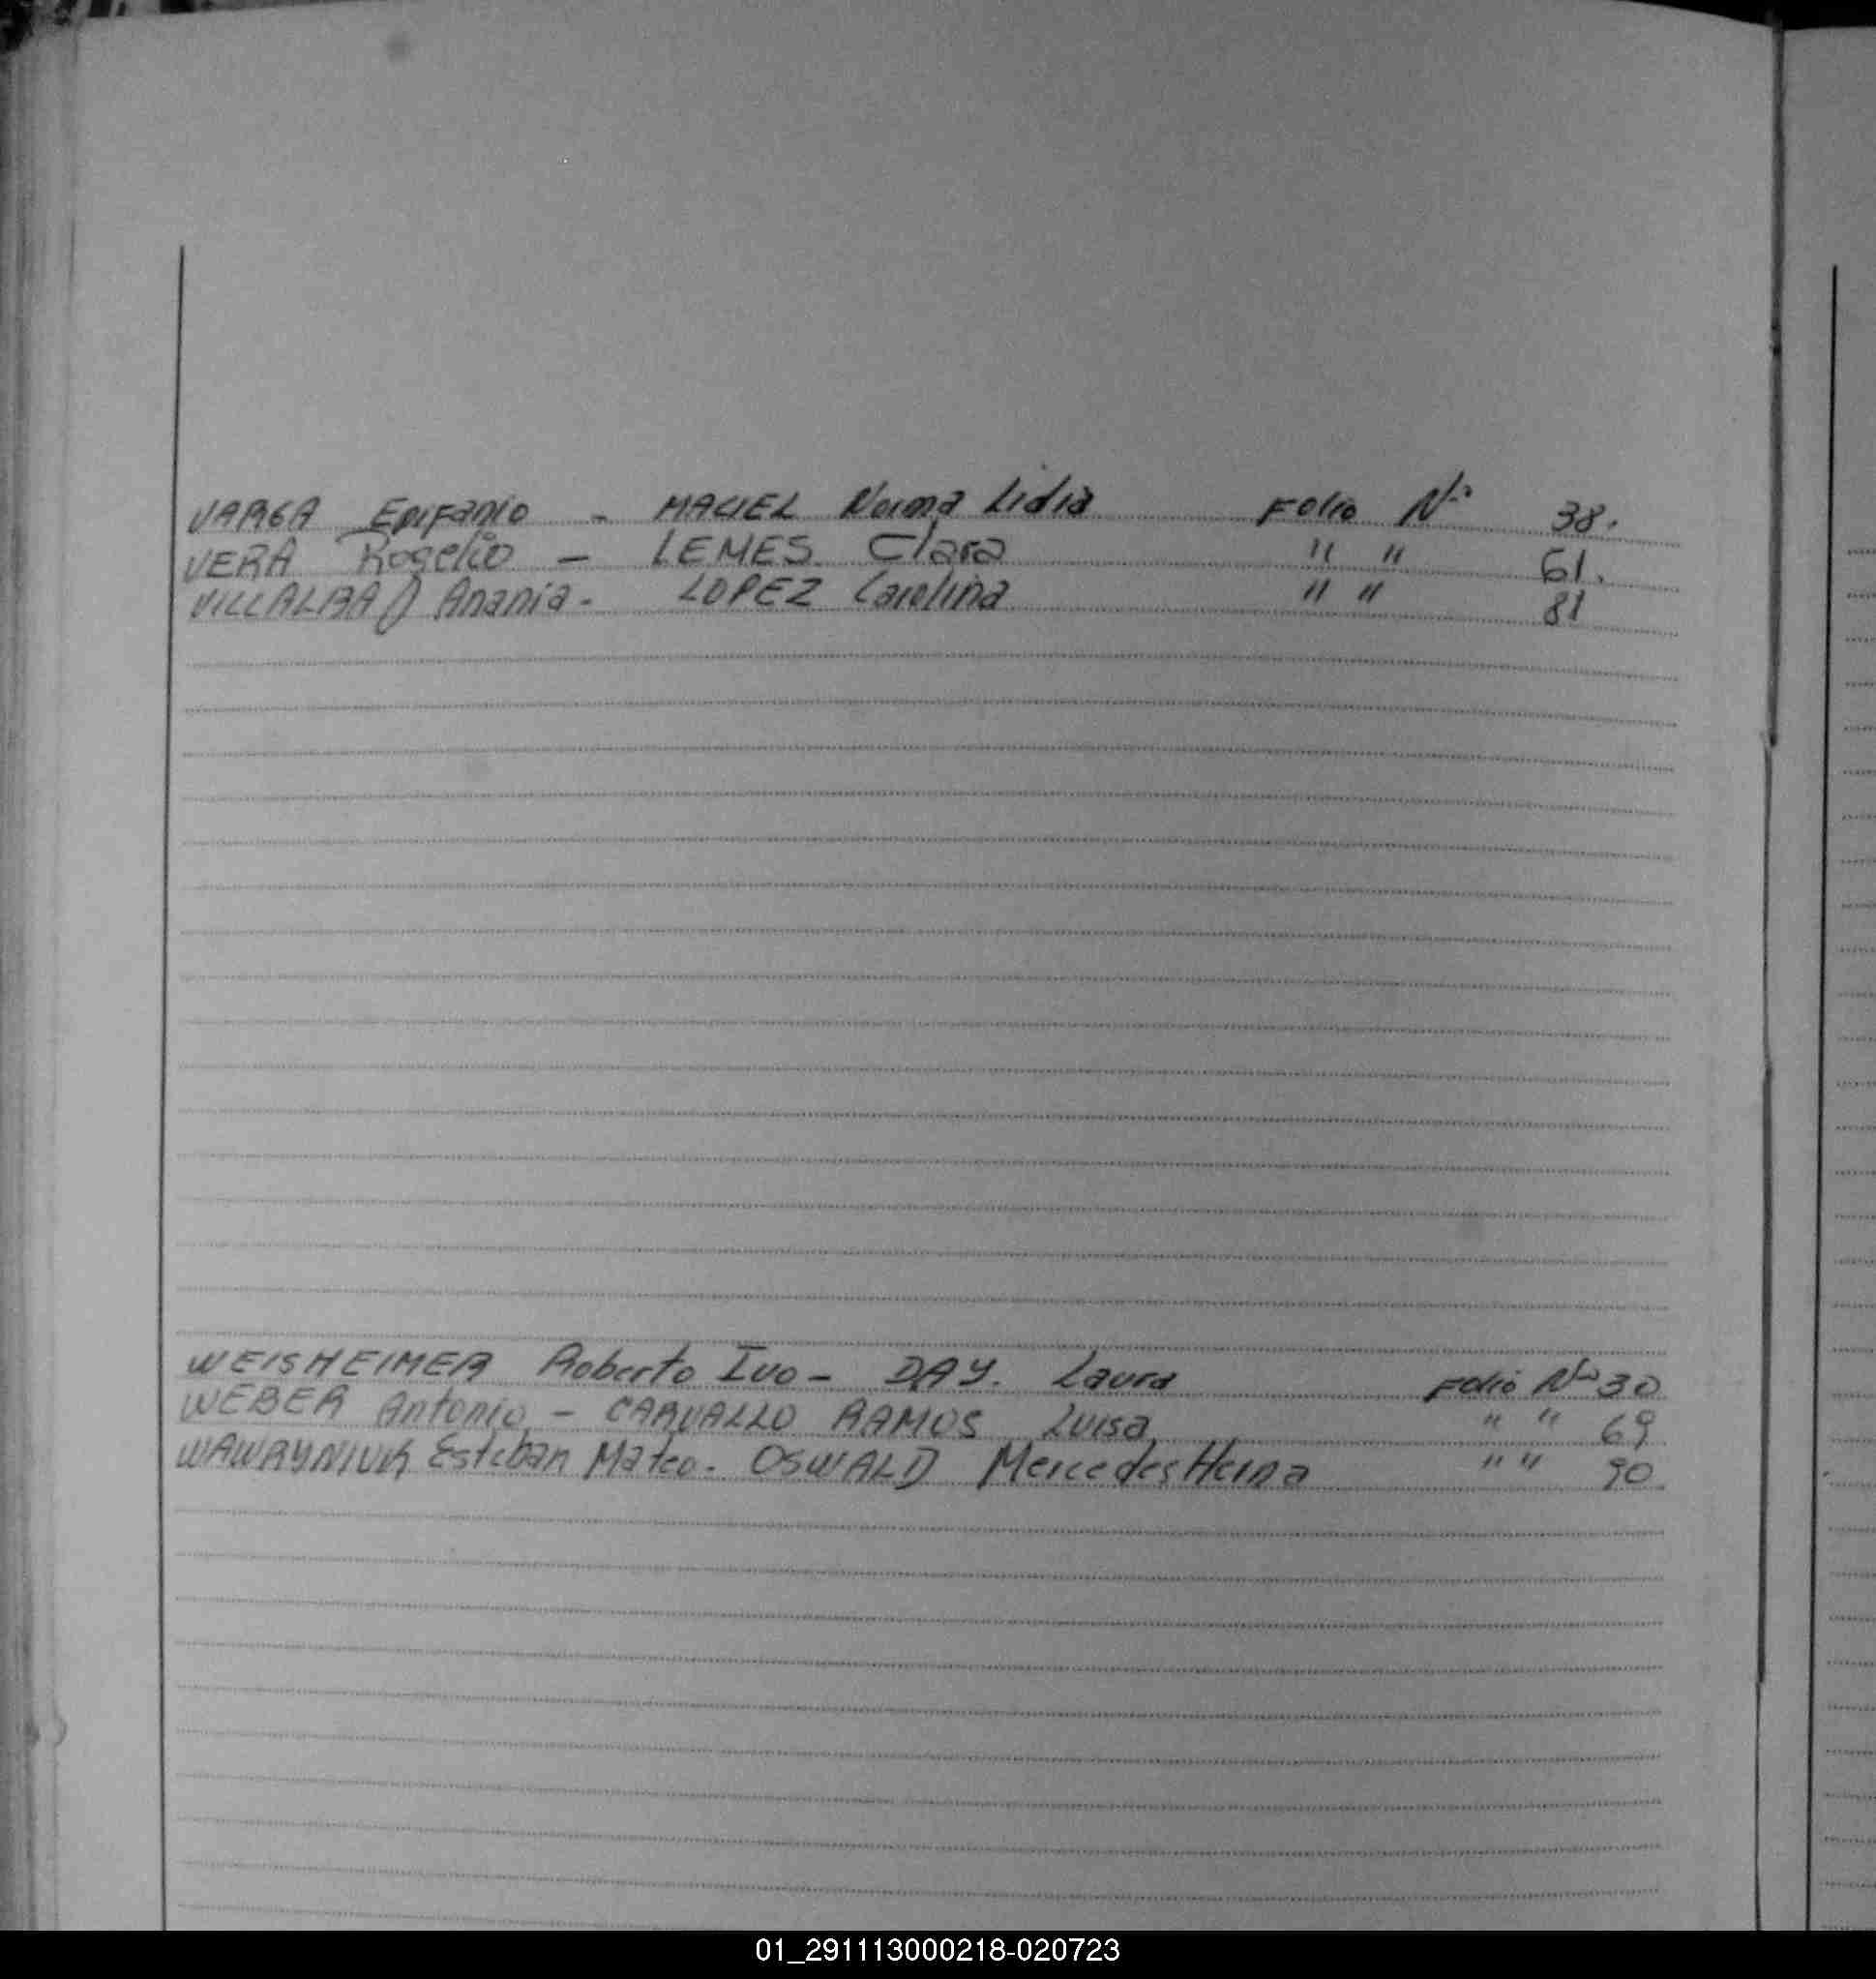 VARGA Epifanio - MACIEL Norma Lidia Folio Nº 38.
VERA Rogelio - LEMES Clara " " 61.
VILLALBA Anania - LOPEZ Carolina " " 81
WEISHEIMER Roberto Ivo - DAY. Laura Folio Nº 30
WEBER Antonio - CARVALLO RAMOS Luisa " " 69
WAWRYNIUK Esteban Mateo - OSWALD Mercedes Herna " " 90
01_291113000218-020723